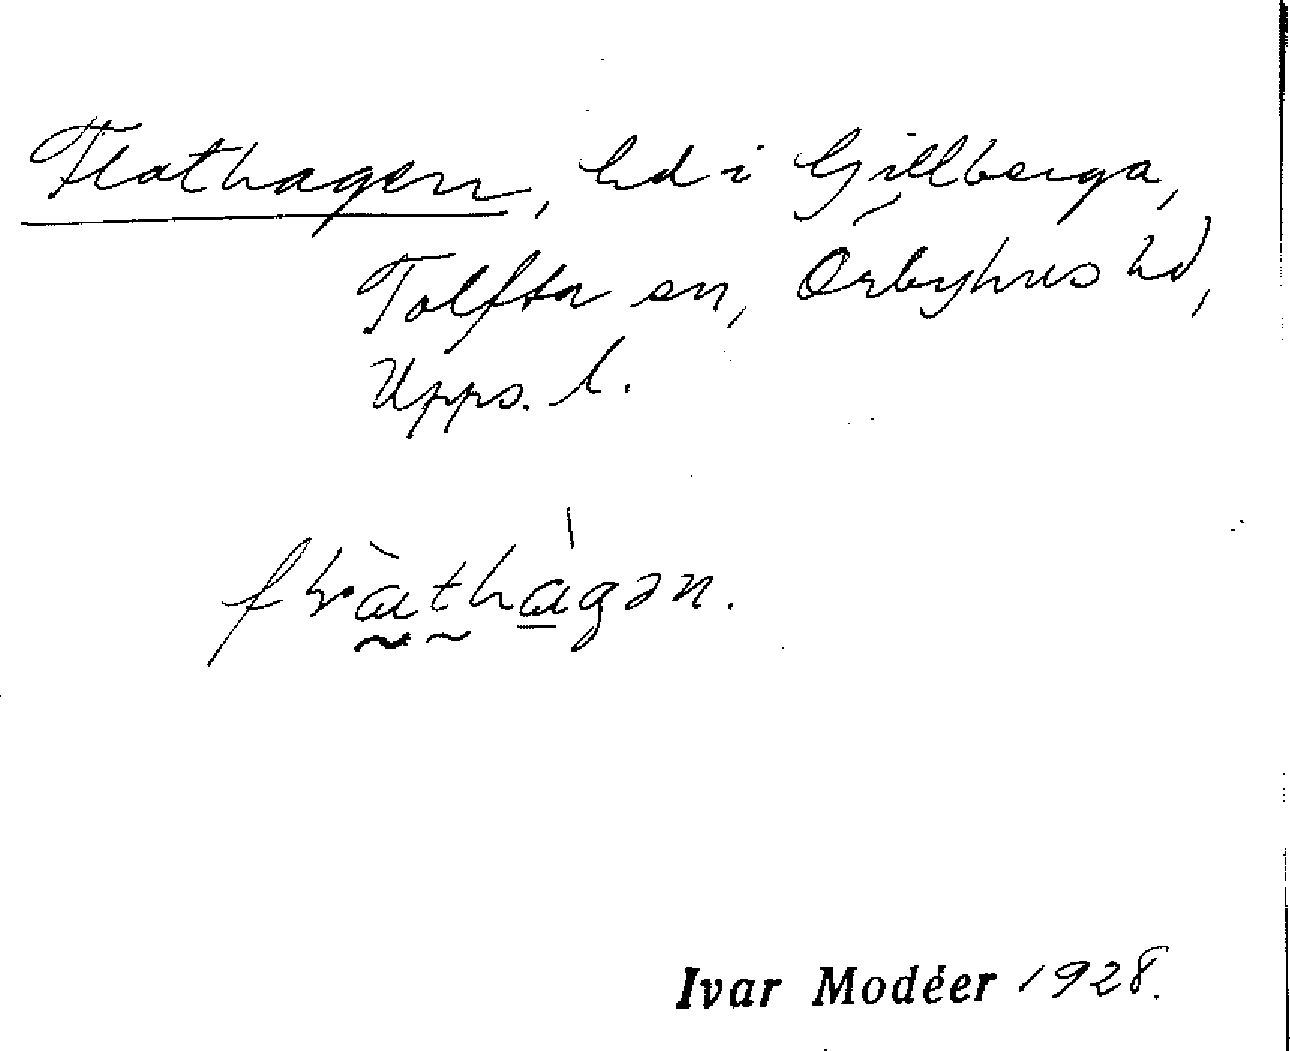 Flathagen, hd i Gillberga,
Tolfta sn, Örbyhus hd,
Upps. l.
flàthágən.
Ivar Modéer 1928.